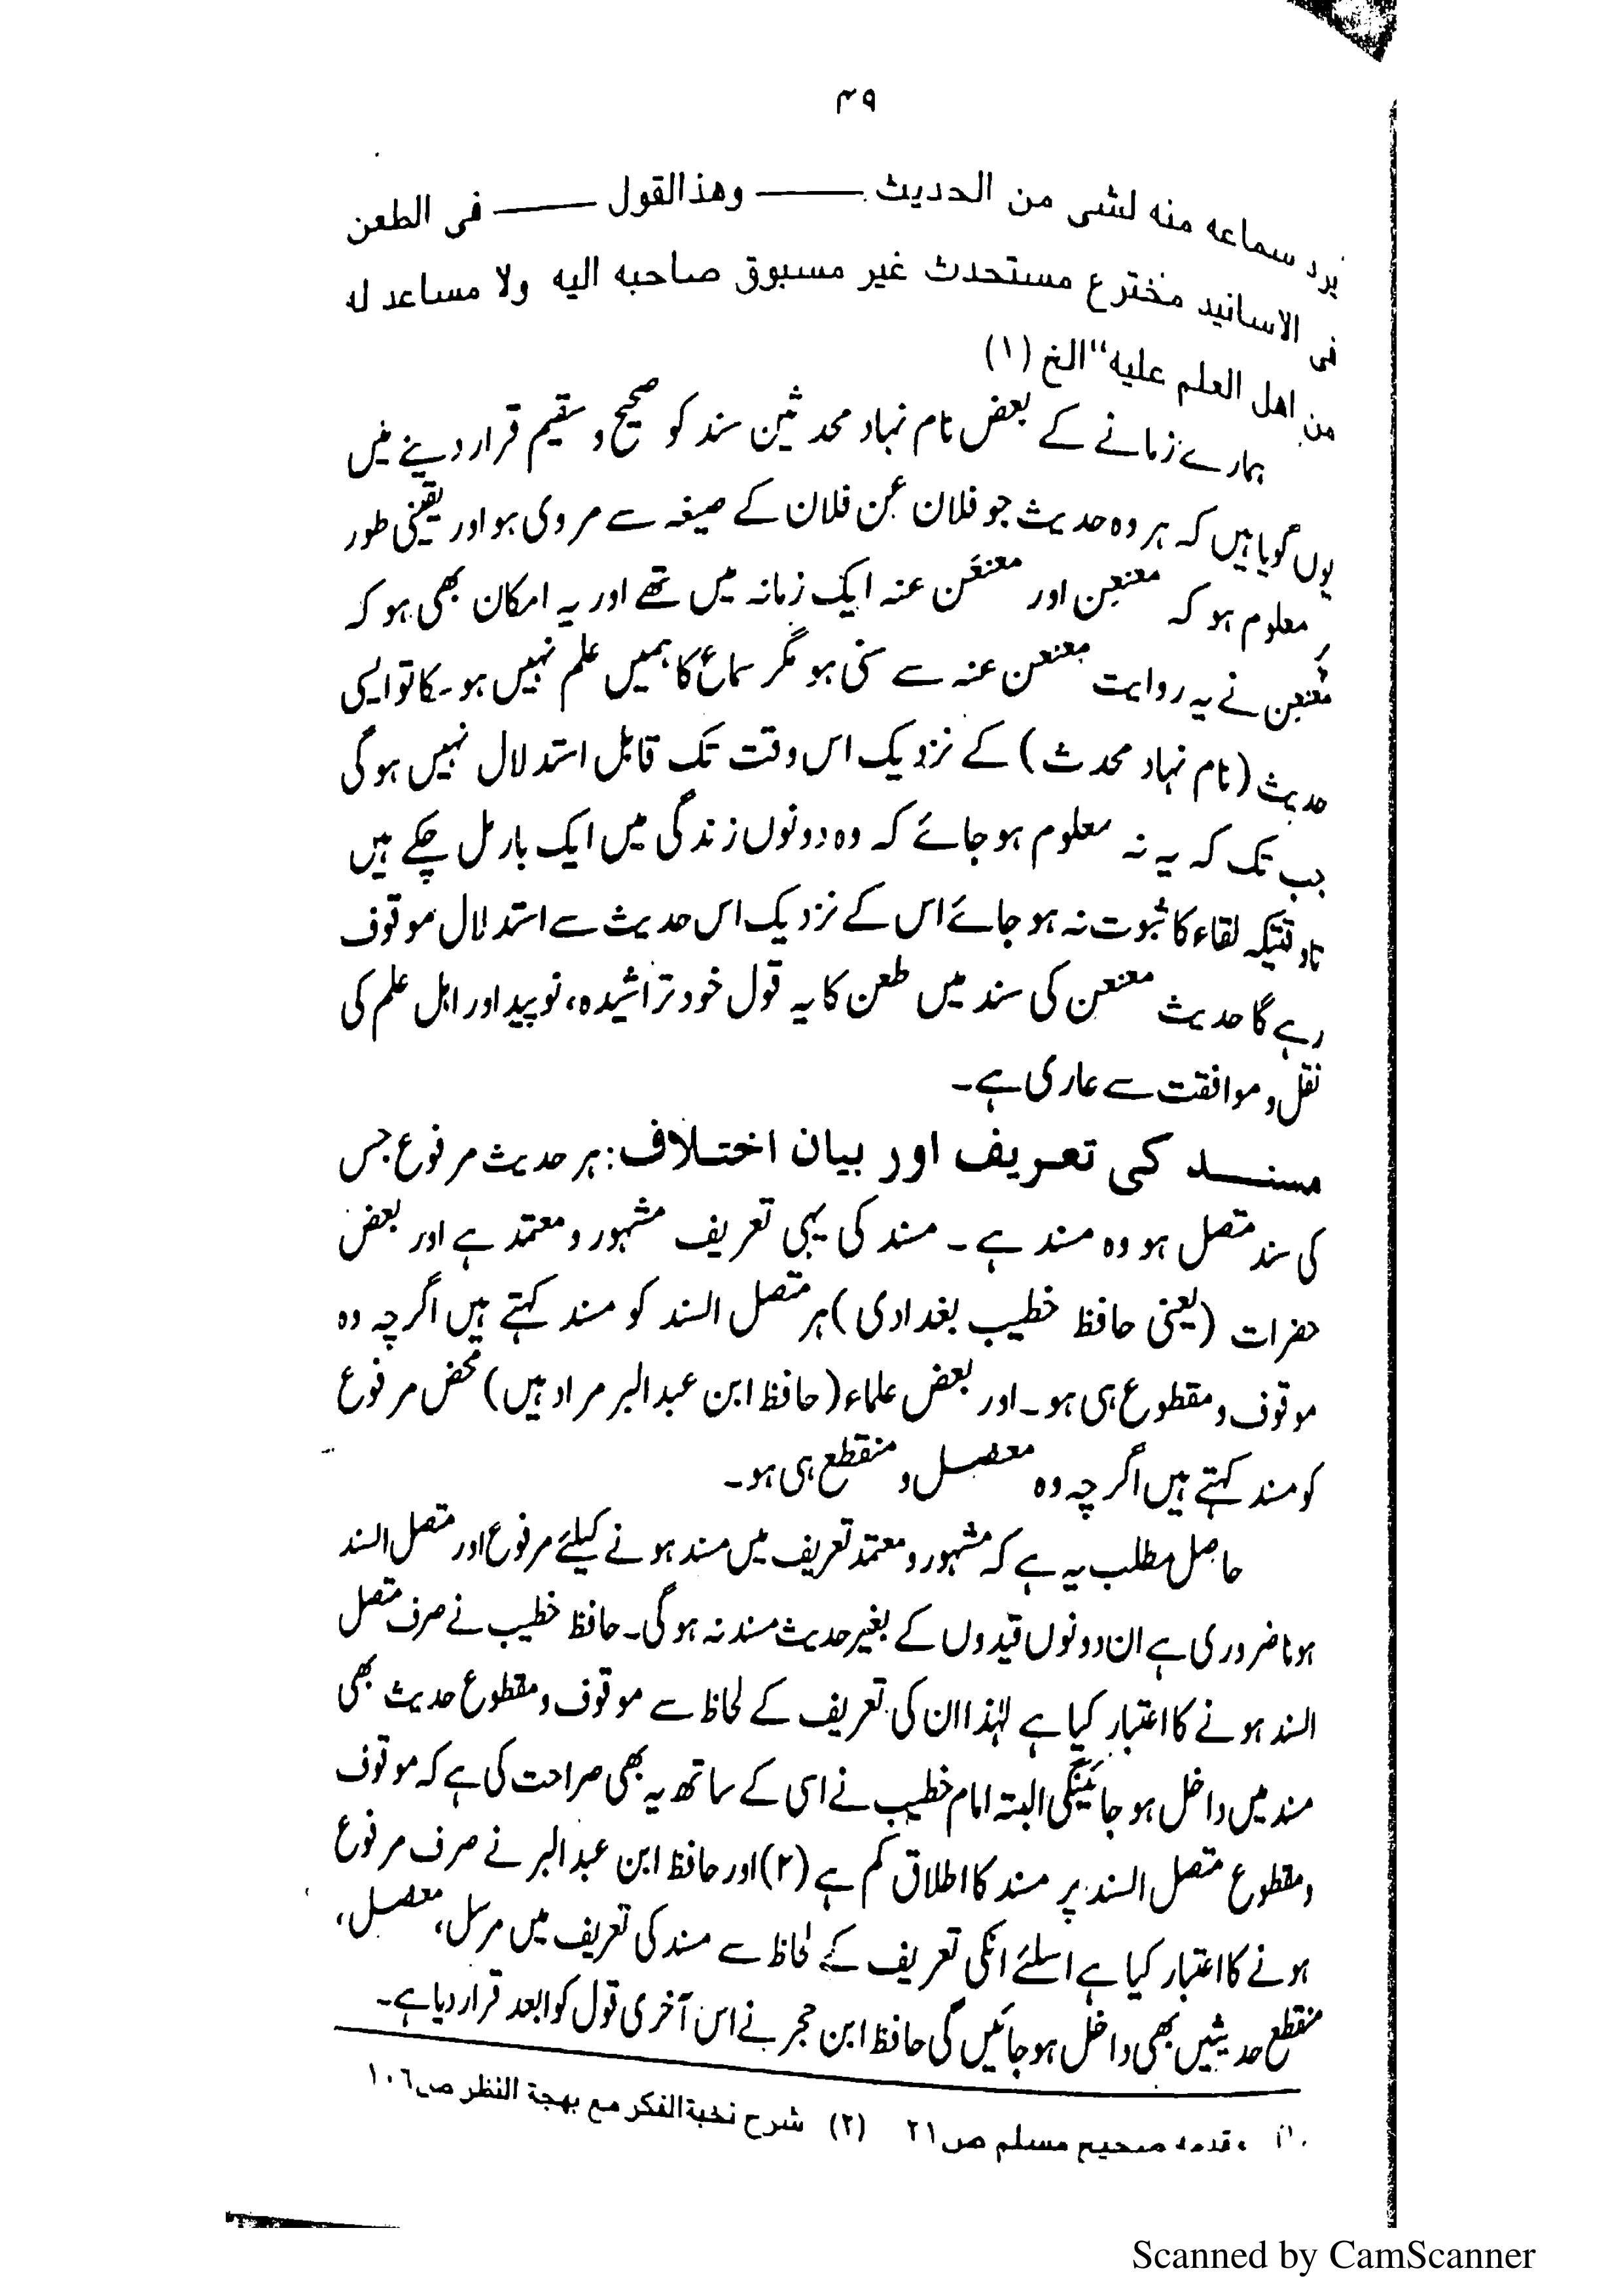 ۴۹
یرد سماعه منه لشی من الحدیث ـــــ وهذالقول ـــــ فی الطعن
فی الاسانید مخترع مستحدث غیر مسبوق صاحبه الیه ولا مساعد له
من اهل العلم علیه"الخ (۱)
ہمارے زمانے کے بعض نام نہاد محدثین سند کو صحیح و سقیم قرار دینے میں
یوں گویا ہیں کہ ہر وہ حدیث جو فلان عن فلان کے صیغہ سے مروی ہو اور یقینی طور
پر معلوم ہو کہ معنعِن اور معنعَن عنہ ایک زمانہ میں تھے اور یہ امکان بھی ہو کہ
معنعِن نے یہ روایت معنعن عنہ سے سنی ہو مگر سماع کا ہمیں علم نہیں ہو سکا تو ایسی
حدیث (نام نہاد محدث) کے نزدیک اس وقت تک قابل استدلال نہیں ہو گی
جب تک کہ یہ نہ معلوم ہو جائے کہ وہ دونوں زندگی میں ایک بار مل چکے ہیں
تاوقتیکہ لقاء کا ثبوت نہ ہو جائے اس کے نزدیک اس حدیث سے استدلال موقوف
رہے گا حدیث معنعن کی سند میں طعن کا یہ قول خود تراشیدہ، نوپید اور اہل علم کی
نقل و موافقت سے عاری ہے۔
مسند کی تعریف اور بیان اختلاف: ہر حدیث مرفوع جس
کی سند متصل ہو وہ مسند ہے۔ مسند کی یہی تعریف مشہور و معتمد ہے اور بعض
حضرات (یعنی حافظ خطیب بغدادی) ہر متصل السند کو مسند کہتے ہیں اگرچہ وہ
موقوف و مقطوع ہی ہو۔ اور بعض علماء (حافظ ابن عبدالبر مراد ہیں) محض مرفوع
کو مسند کہتے ہیں اگرچہ وہ معضل و منقطع ہی ہو۔
حاصل مطلب یہ ہے کہ مشہور و معتمد تعریف میں مسند ہونے کیلئے مرفوع اور متصل السند
ہونا ضروری ہے ان دونوں قیدوں کے بغیر حدیث مسند نہ ہو گی۔ حافظ خطیب نے صرف متصل
السند ہونے کا اعتبار کیا ہے لہٰذا ان کی تعریف کے لحاظ سے موقوف و مقطوع حدیث بھی
مسند میں داخل ہو جائینگی البتہ امام خطیب نے اسی کے ساتھ یہ بھی صراحت کی ہے کہ موقوف
و مقطوع متصل السند پر مسند کا اطلاق کم ہے (۲) اور حافظ ابن عبدالبر نے صرف مرفوع
ہونے کا اعتبار کیا ہے اسلئے انکی تعریف کے لحاظ سے مسند کی تعریف میں مرسل، معضل،
منقطع حدیثیں بھی داخل ہو جائیں گی حافظ ابن حجر نے اس آخری قول کو ابعد قرار دیا ہے۔
(۱) مقدمه صحیح مسلم ص۲۱ (۲) شرح نخبةالفکر مع بهجة النظر ص۱۰٦
Scanned by CamScanner